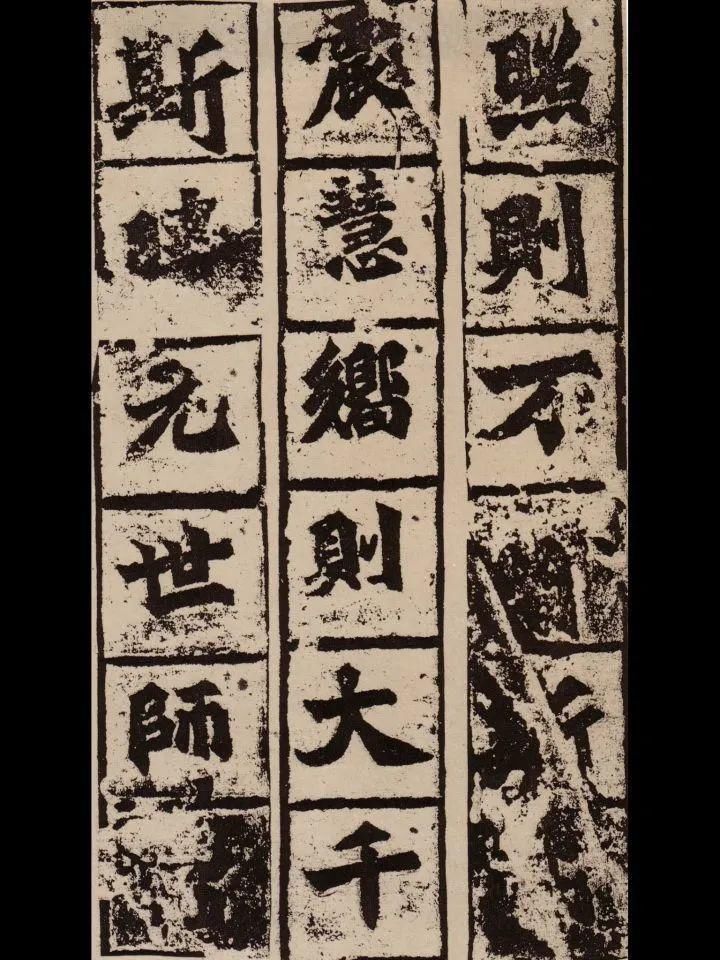 照則不
震慧嚮則大千
斯元世師